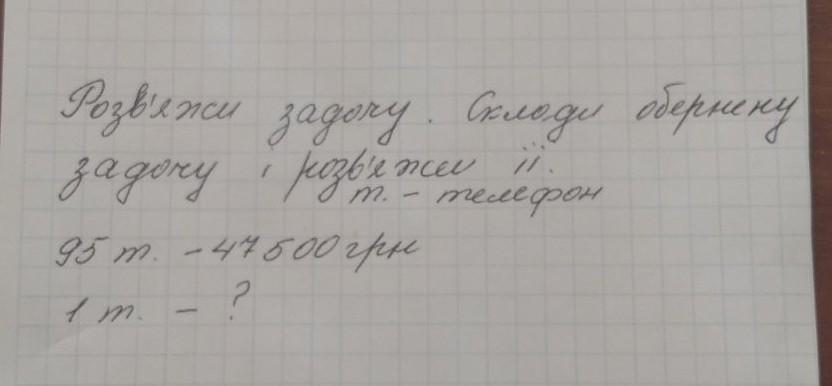 Розв'яжи задачу. Склади обернену
задачу і розв'яжи її.
т. - телефон
95 т. - 47500 грн
1 т. - ?